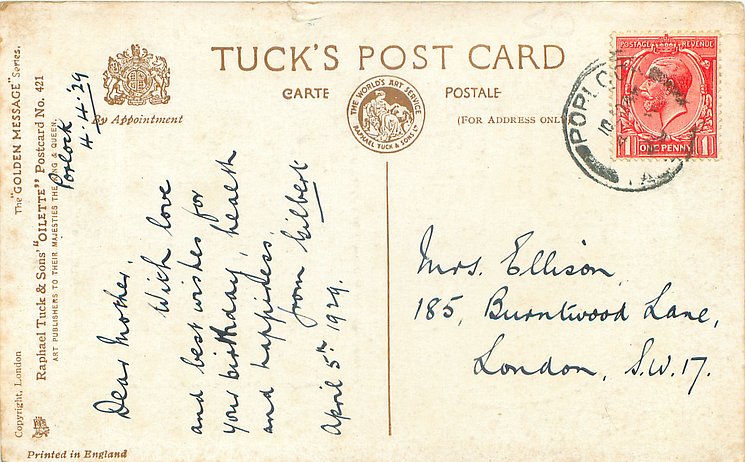 TUCK'S POST CARD
CARTE POSTALE
By Appointment
THE WORLD'S ART SERVICE
RAPHAEL TUCK & SONS LTD
(FOR ADDRESS ONLY
POSTAGE REVENUE
1 ONE PENNY 1
PORLOCK
The "GOLDEN MESSAGE" Series.
Raphael Tuck & Sons' "OILETTE" Postcard No. 421
ART PUBLISHERS TO THEIR MAJESTIES THE KING & QUEEN.
Copyright, London
Printed in England
Porlock
4.4.'29
Dear Mother,
With love
and best wishes for
your birthday, health
and happiness.
from Gilbert
April 5th 1929.
Mrs. Ellison,
185, Burntwood Lane,
London, S.W.17.